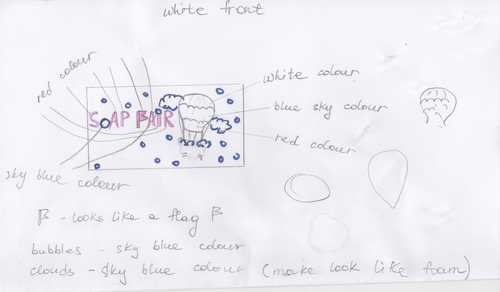 white front
red colour
white colour
blue sky colour
SOAP FAIR
red colour
sky blue colour
F - looks like a flag F
bubbles - sky blue colour
clouds - sky blue colour (make look like foam)